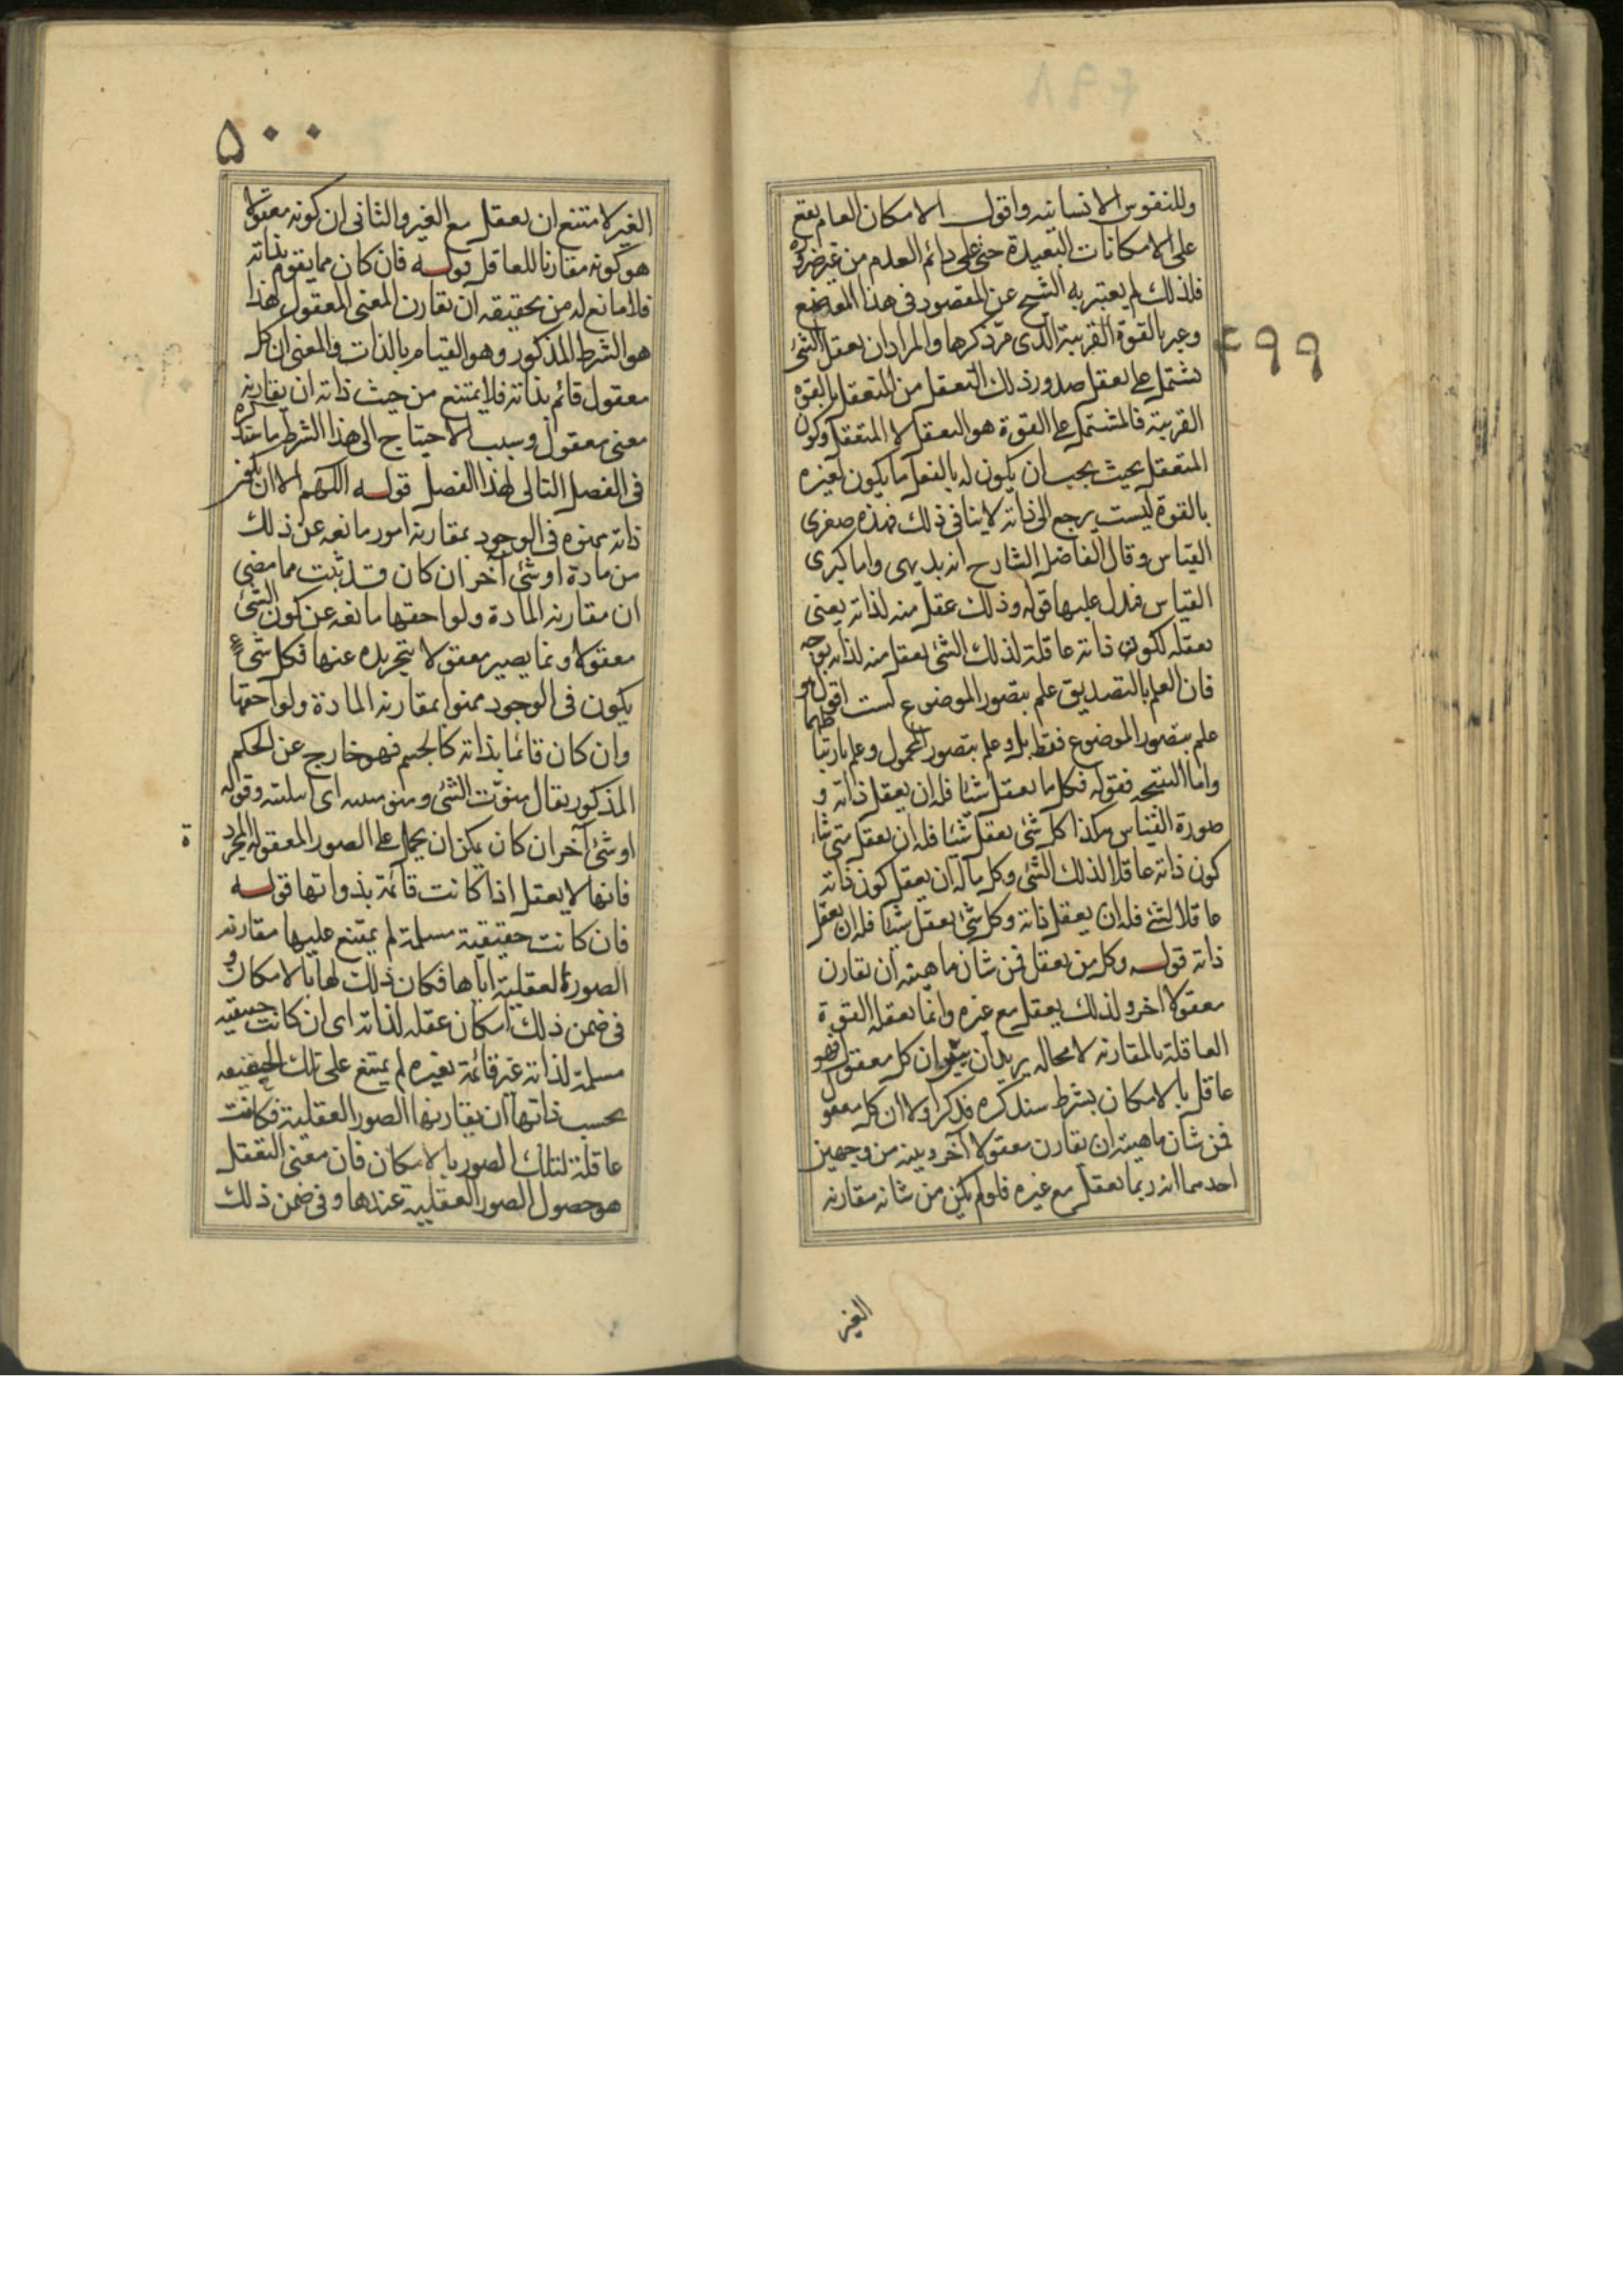 ٤٩٩
وللنفوس الانسانيه واقول الامكان العام يقع
على الامكانات البعيدة حتى على دائم العدم من غير ضروره
فلذلك لم يعتبر به الشيخ عن المقصود فى هذا الموضع
وعبر بالقوة القريبة الذى مرّ ذكرها والمراد ان تعقل الشئ
يشتمل على تعقل صدور ذلك التعقل من المتعقل بالقوه
القريبة فالمشتمل على القوة هو التعقل لا المتعقل وكون
المتعقل بحيث يجب ان يكون له بالفعل ما يكون لغيره
بالقوة ليست يرجع الى ذاته لا ينافى ذلك فهذه صغرى
القياس وقال الفاضل الشارح انه بديهى واما كبرى
القياس فدل عليها قوله وذلك عقل منه لذاته يعنى
تعقله لكون ذاته عاقلة لذلك الشئ تعقل منه لذاته بوجه
فان العلم بالتصديق علم بتصور الموضوع لست اقول هو
علم بتصور الموضوع فقط بل وعلم بتصور المحمول وعلم بارتباطهما
واما النتيجه فقوله فكل ما يعقل شئا فله ان يعقل ذاته و
صورة القياس هكذا كل شئ يعقل شئا فله ان يعقل متى شاء
كون ذاته عاقلا لذلك الشئ وكل ماله ان يعقل كون ذاته
عاقلا لشئ فله ان يعقل ذاته وكل شئ يعقل شئا فله ان يعقل
ذاته قوله وكل من يعقل فمن شان ماهيته ان تقارن
معقولا اخر ولذلك يعقل مع غيره وانما تعقله القوة
العاقلة بالمقارنه لا محاله يريد ان يبين ان كل معقول فهو
عاقل بالامكان بشرط سنذكره فذكر اولا ان كل معقول
فمن شان ماهيته ان تقارن معقولا آخر وبينه من وجهين
احدهما انه ربما تعقل مع غيره فلو لم يكن من شانه مقارنه
الغير
٥٠٠
الغير لامتنع ان يعقل مع الغير والثانى ان كونه معقولا
هو كونه مقارنا للعاقل قوله فان كان مما يقوم بذاته
فلا مانع له من حقيقته ان تقارن المعنى المعقول هذا
هو الشرط المذكور وهو القيام بالذات والمعنى ان كل
معقول قائم بذاته فلا يمتنع من حيث ذاته ان يقارنه
معنى معقول وسبب الاحتياج الى هذا الشرط ما سنذكره
فى الفصل التالى لهذا الفصل قوله اللهم الا ان يكون
ذاته ممنوه فى الوجود بمقارنه امور مانعه عن ذلك
من مادة او شئ آخر ان كان قد ثبت مما مضى
ان مقارنه المادة ولواحقها مانعه عن كون الشئ
معقولا وانما يصير معقولا بتجريده عنها فكل شئ
يكون فى الوجود ممنوا بمقارنه المادة ولواحقها
وان كان قائما بذاته كالجسم فهو خارج عن الحكم
المذكور يقال منوت الشئ ومنيته اى ابتليته وقوله
او شئ آخر ان كان يمكن ان يحمل على الصور المعقوله المجرد
ة
فانها لا يعقل اذا كانت قائمة بذواتها قوله
فان كانت حقيقية مسلمة لم يمتنع عليها مقارنه
الصورة العقلية اياها فكان ذلك لها بالامكان و
فى ضمن ذلك امكان عقله لذاته اى ان كانت حقيقيه
مسلمة لذاته غير قائمة بغيره لم يمتنع على تلك الحقيقه
بحسب ذاتها ان يقارنها الصور العقلية فكانت
عاقلة لتلك الصور بالامكان فان معنى التعقل
هو حصول الصور العقلية عندها وفى ضمن ذلك